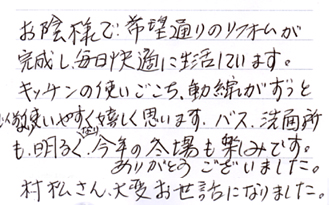 お陰様で、希望通りのリフォームが
完成し、毎日快適に生活しています。
キッチンの使いごこち、動線がずっと
使いやすく嬉しく思います。バス、洗面所
も、明るくなり、今年の冬場も楽しみです。
ありがとうございました。
村松さん、大変お世話になりました。